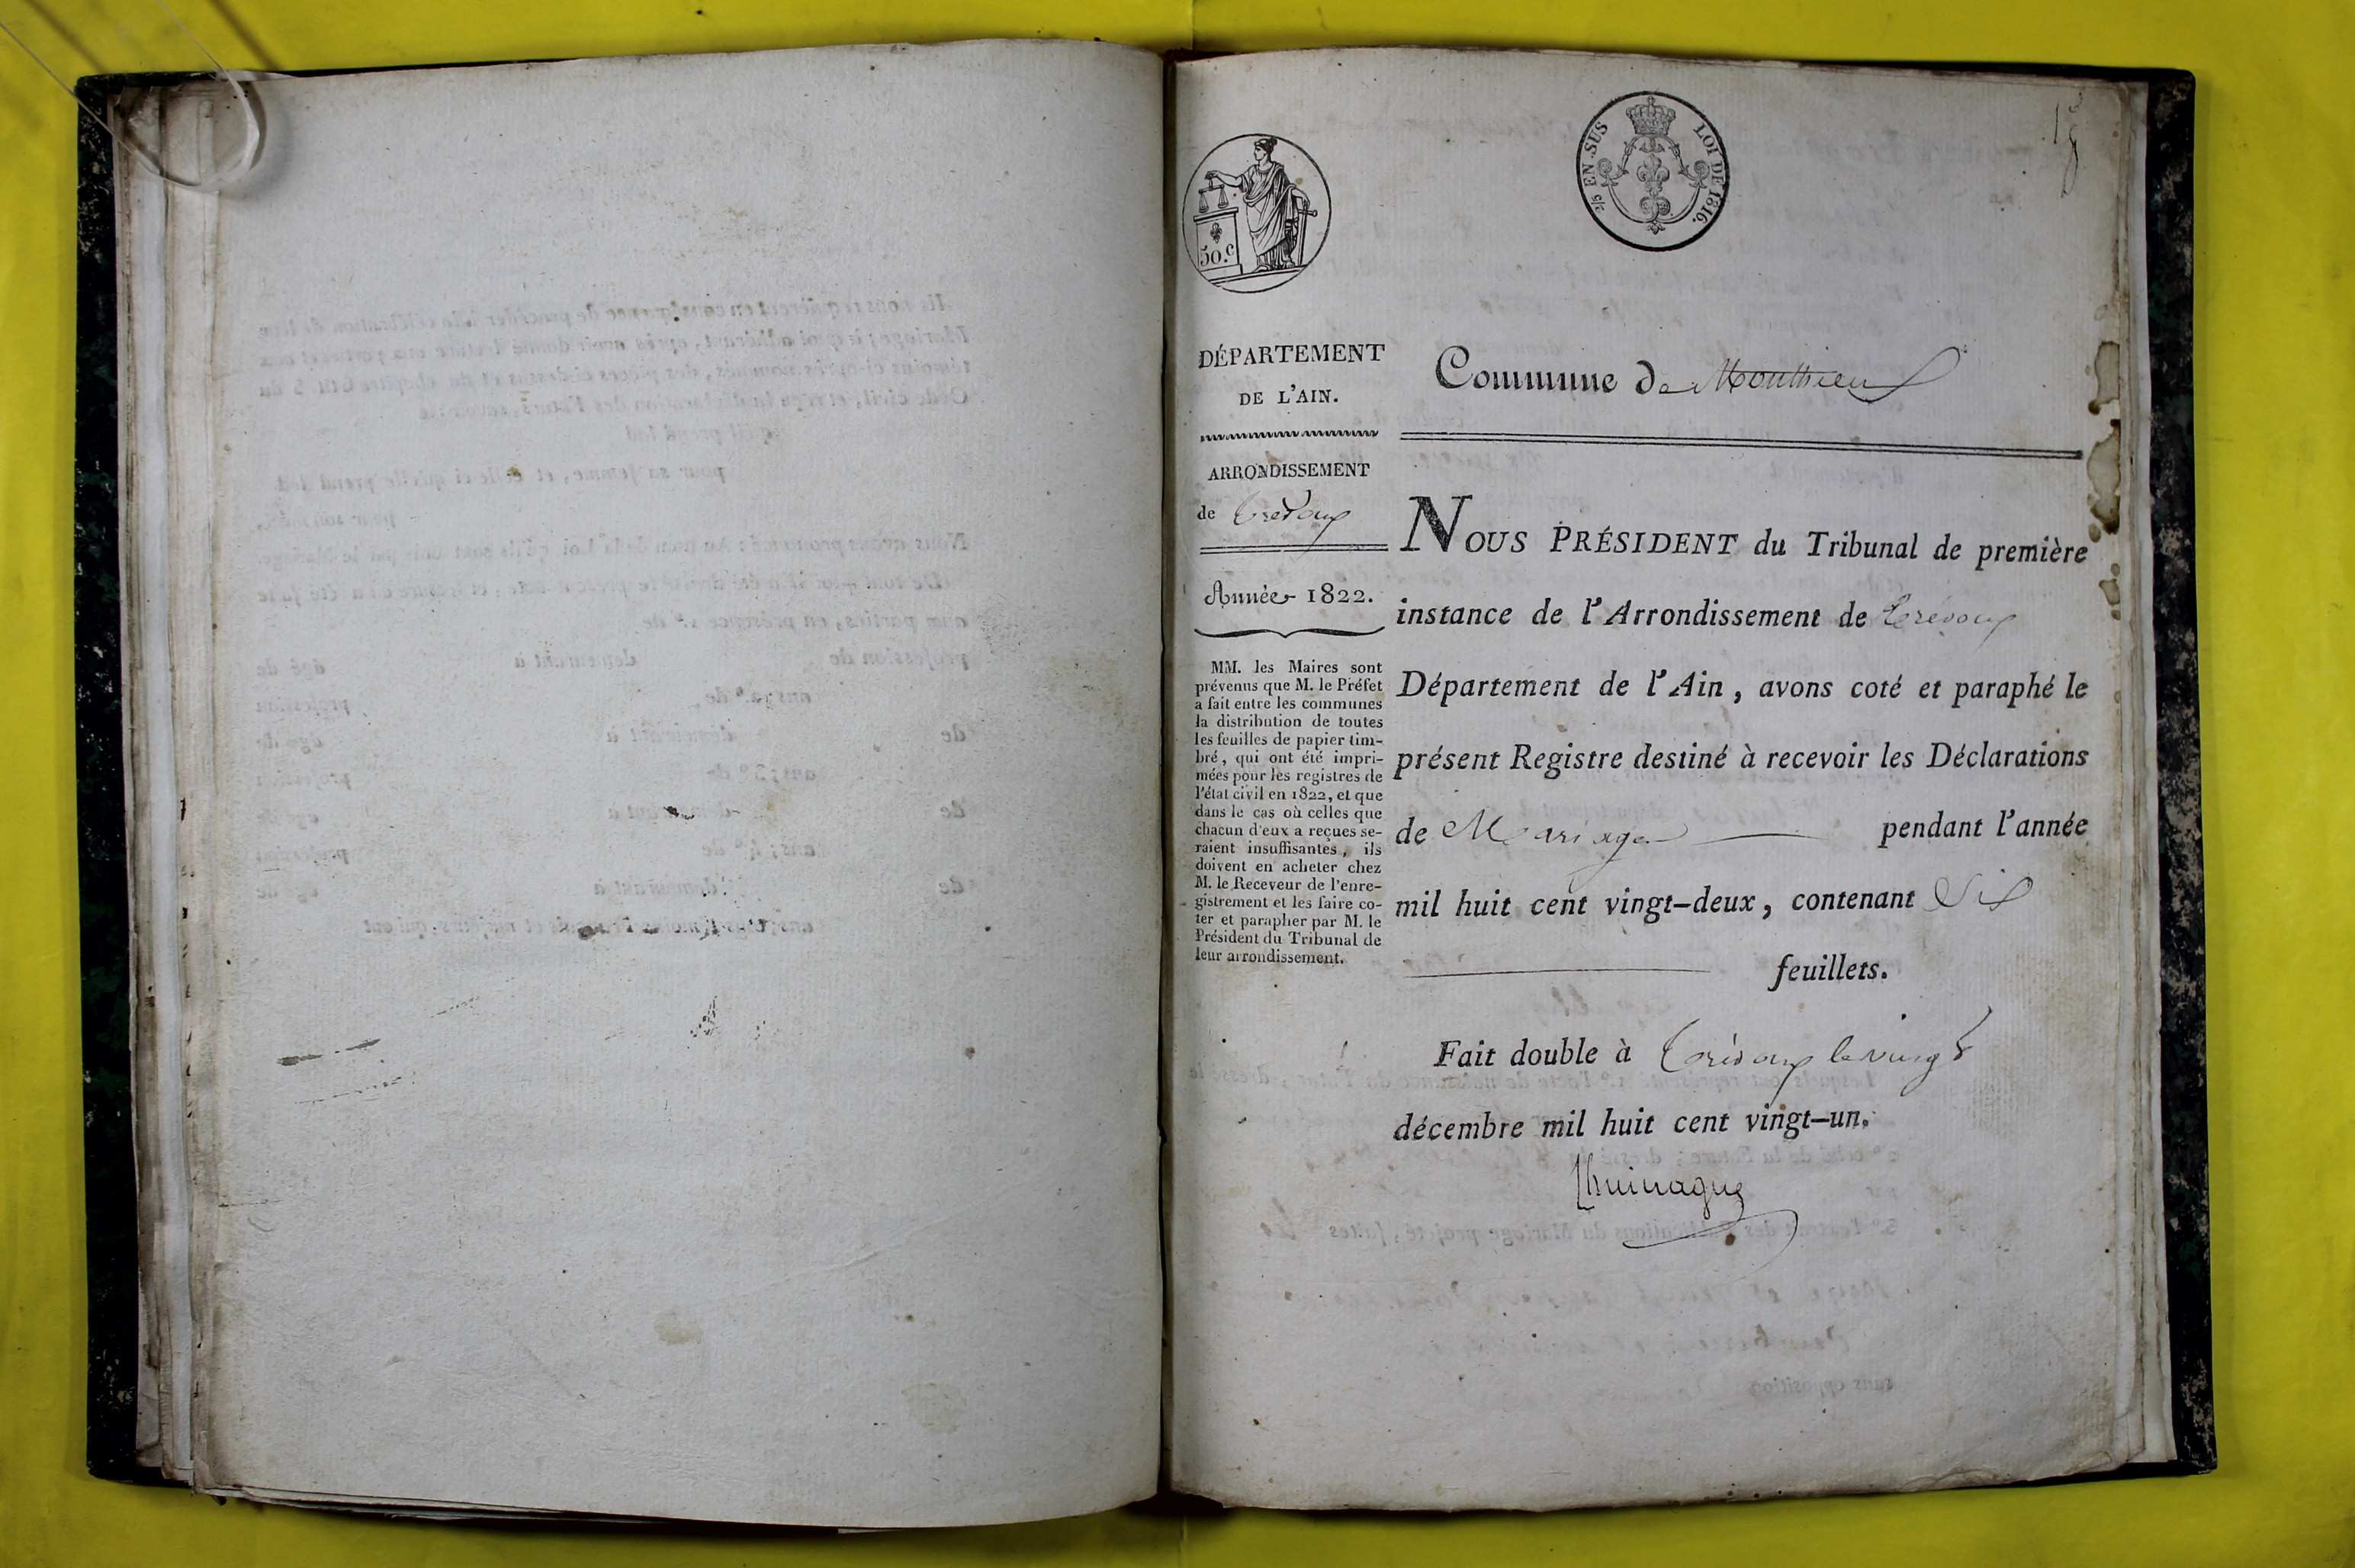 50.c
2/5 EN SUS
LOI DE 1816.
DÉPARTEMENT
DE L'AIN.
ARRONDISSEMENT
de Trévoux
Année 1822.
MM. les Maires sont
prévenus que M. le Préfet
a fait entre les communes
la distribution de toutes
les feuilles de papier tim-
bré, qui ont été impri-
mées pour les registres de
l'état civil en 1822, et que
dans le cas où celles que
chacun d'eux a reçues se-
raient insuffisantes, ils
doivent en acheter chez
M. le Receveur de l'enre-
gistrement et les faire co-
ter et parapher par M. le
Président du Tribunal de
leur arrondissement.
Commune de Monthieux
NOUS PRÉSIDENT du Tribunal de première
instance de l'Arrondissement de Trévoux
Département de l'Ain, avons coté et paraphé le
présent Registre destiné à recevoir les Déclarations
de Mariage pendant l'année
mil huit cent vingt-deux, contenant Six
feuillets.
Fait double à Trévoux le vingt
décembre mil huit cent vingt-un.